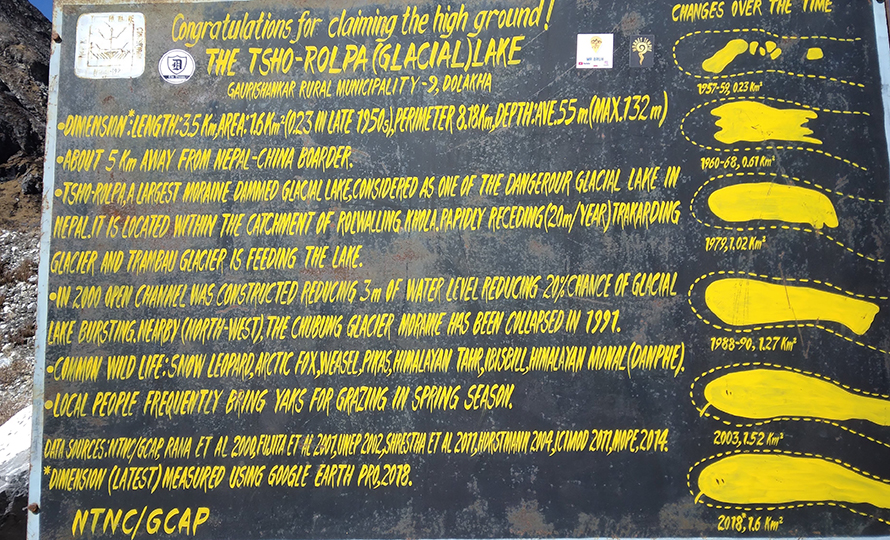 Congratulations for claiming the high ground!
THE TSHO-ROLPA (GLACIAL) LAKE
GAURISHANKAR RURAL MUNICIPALITY-9, DOLAKHA
•DIMENSION*:LENGTH:3.5 Km,AREA:1.6Km²(0.23 IN LATE 1950s),PERIMETER 8.18Km,DEPTH:AVE.55 m.(MAX.132 m)
•ABOUT 5 Km AWAY FROM NEPAL-CHINA BOARDER.
•TSHO-ROLPA,A LARGEST MORAINE DAMMED GLACIAL LAKE,CONSIDERED AS ONE OF THE DANGEROUR GLACIAL LAKE IN
NEPAL.IT IS LOCATED WITHIN THE CATCHMENT OF ROLWALLING KHOLA.RAPIDLY RECEDING(20m/YEAR)TRAKARDING
GLACIER AND TRAMBAU GLACIER IS FEEDING THE LAKE.
•IN 2000 OPEN CHANNEL WAS CONSTRUCTED REDUCING 3m OF WATER LEVEL REDUCING 20% CHANCE OF GLACIAL
LAKE BURSTING.NEARBY (NORTH-WEST),THE CHUBUNG GLACIER MORAINE HAS BEEN COLLAPSED IN 1991.
•COMMON WILD LIFE: SNOW LEOPARD,ARCTIC FOX,WEASEL,PIKAS,HIMALAYAN TAHR,IBISBILL,HIMALAYAN MONAL(DANPHE).
•LOCAL PEOPLE FREQUENTLY BRING YAKS FOR GRAZING IN SPRING SEASON.
DATA SOURCES:NTNC/GCAP, RANA ET AL 2000,FUJITA ET AL 2001,UNEP 2002,SHRESTHA ET AL 2011,HORSTMANN 2004,ICIMOD 2011,MOPE,2014.
*DIMENSION (LATEST) MEASURED USING GOOGLE EARTH PRO,2018.
NTNC/GCAP
CHANGES OVER THE TIME
1957-59, 0.23 Km²
1960-68, 0.61 Km²
1979, 1.02 Km²
1988-90, 1.27 Km²
2003, 1.52 Km²
2018*, 1.6 Km²